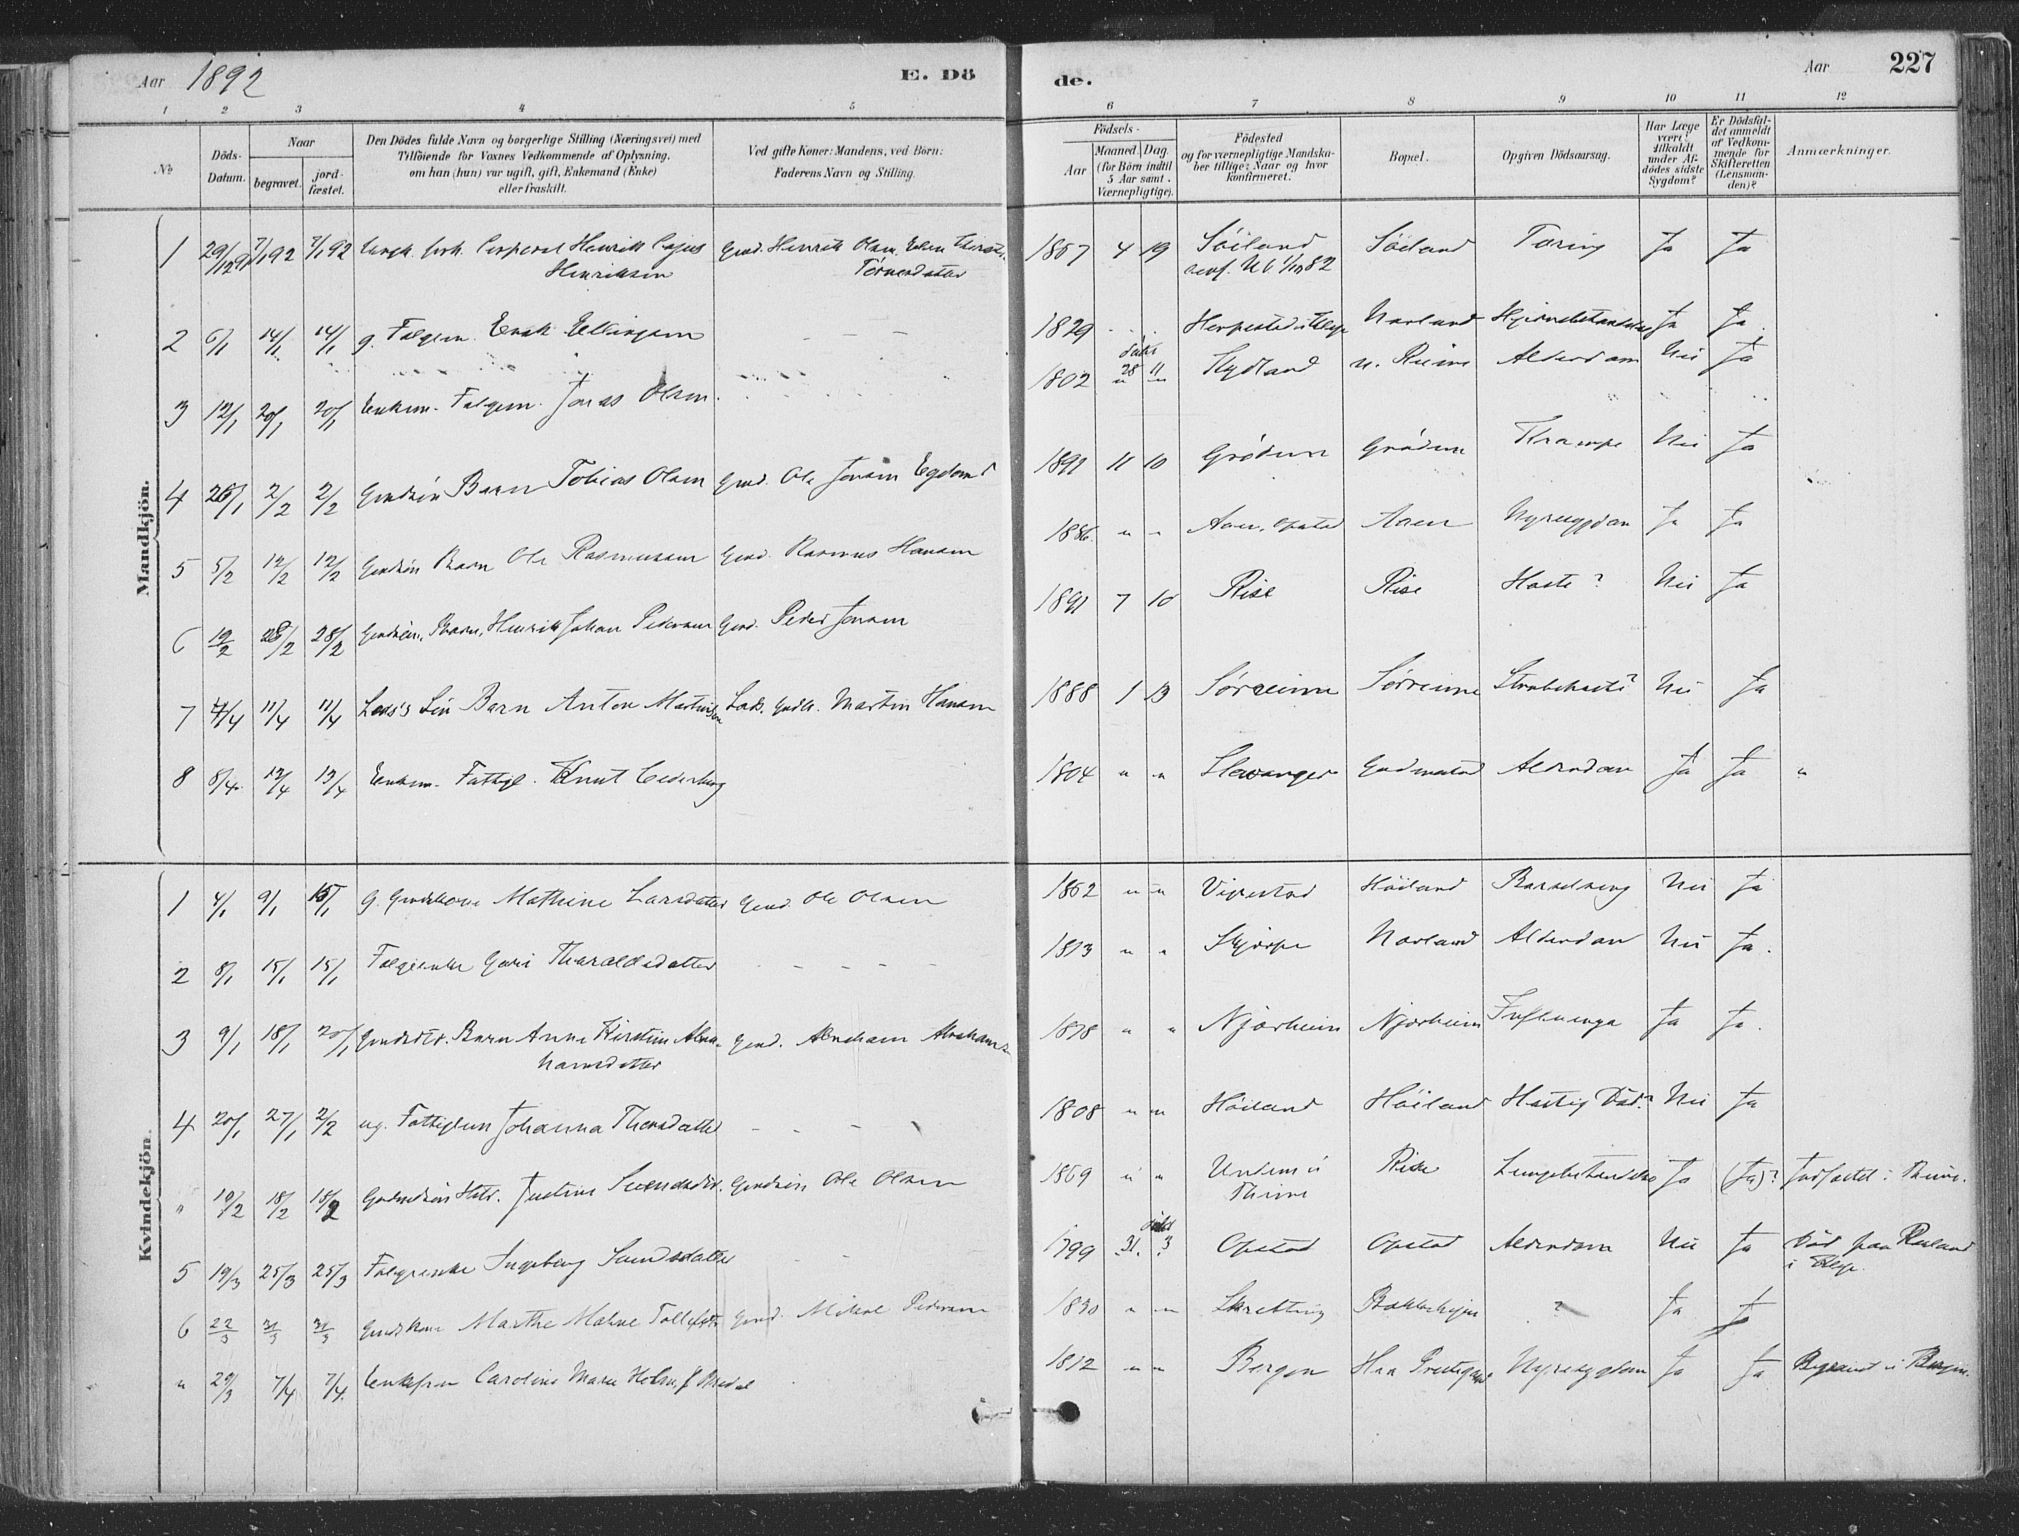 Aar 1892 E. Dö
de. Aar 227
1 2 3 4 5
6 7 8 9 10 11 12
№
Döds-
Datum.
Naar
begravet.
jord-
fæstet.
Den Dödes fulde Navn og borgerlige Stilling (Næringsvei) med
Tilföiende for Voxnes Vedkommende af Oplysning,
om han (hun) var ugift, gift, Enkemand (Enke)
eller fraskilt.
Ved gifte Koner: Mandens, ved Börn:
Faderens Navn og Stilling.
Födsels-
Aar
Maaned. Dag.
(for Börn indtil
5 Aar samt
Værnepligtige).
Födested
og for værnepligtige Mandska-
ber tillige: Naar og hvor
konfirmeret.
Bopæl.
Opgiven Dödsaarsag.
Har Læge
været
tilkaldt
under Af-
dödes sidste
Sygdom?
Er Dödsfal-
det anmeldt
af Vedkom-
mende for
Skifteretten
(Lensman-
den)?
Anmærkninger.
Mandkjön.
1 29/12 91 7/1 92 7/1 92 Corporal Henrik Cajus Gmd. Henrik Olsen 1867 4 19 Söiland Söiland Tæring Ja Ja
Henriksen Törresdatter
2 6/1 14/1 14/1 g. Folgem. Enok Ellingsen - - 1829 Norland Hjernebetændelse Ja Ja
3 12/1 20/1 20/1 Enkem. Folgem. Jonas Olsen. 1802 Hydland n. Reime Alderdom Nei Ja
4 26/1 2/2 2/2 Gmdsön Barn Tobias Olsen Gmd. Ole Jonsen Egeland 1891 11 10 Grödem Grödem Krampe Nei Ja
5 5/2 12/2 12/2 Gmdsön Barn Ole Rasmussen Gmd. Rasmus Hansen 1886 " " Aaen, Opstad Aaen Nyresygdom Ja Ja
6 19/2 28/2 28/2 Gmdsön, Barn, Henrik Johan Pedersen Gmd. Peder Jonsen 1891 7 10 Rise Rise Hoste? Nei Ja
7 4/4 11/4 11/4 Barn Anton Martinsen Martin Hansen 1888 1 13 Sörreime Sörreime Strubehoste? Nei Ja
8 8/4 13/4 13/4 Enkem. Fattigl. Knut Cederberg 1804 " " Stavanger Gudmestad Alderdom Ja Ja "
Kvindekjön.
1 4/1 9/1 15/1 g. Gmdskone Mathine Larsdatter Gmd. Ole Olsen 1862 " " Vigrestad Höiland Barselseng Nei Ja
2 8/1 15/1 15/1 Folgeenke Guri Tharaldsdatter - - - - 1813 " " Skjerpe Norland Alderdom Nei Ja.
3 9/1 18/1 20/1 Gmdsdtr. Barn Anne Kirstine Abra- Gmd. Abraham Abrahamsen 1878 " " Njærheim Njærheim Influenza Ja Ja.
hamsdatter
4 20/1 27/1 2/2 ug. Fattiglem Johanna Thoresdatter - - - 1808 " " Höiland Höiland Hastig Död? Nei Ja
" 10/2 18/2 18/2 Justine Svendsdtr. Gmdsön Ole Olsen 1869 " " Undem i Rise Lungebetændelse Ja (Ja)? Jordfæstet i Thime.
Thime
5 19/3 25/3 25/3 Folgeenke Ingeborg Svendsdatter - 1799 31. 3 Opstad Opstad Alderdom Nei Ja Död paa
6 22/3 31/3 31/3 Gmdskone Marthe Malene Gmd. Mikal Pedersen 1830 " " Skretting ? Ja Ja
" 29/3 7/4 7/4. Enkefru Caroline Marie Holm, f. 1812 " " Bergen Haa Prestegaard Nyresygdom Ja Ja Begravet i Bergen.